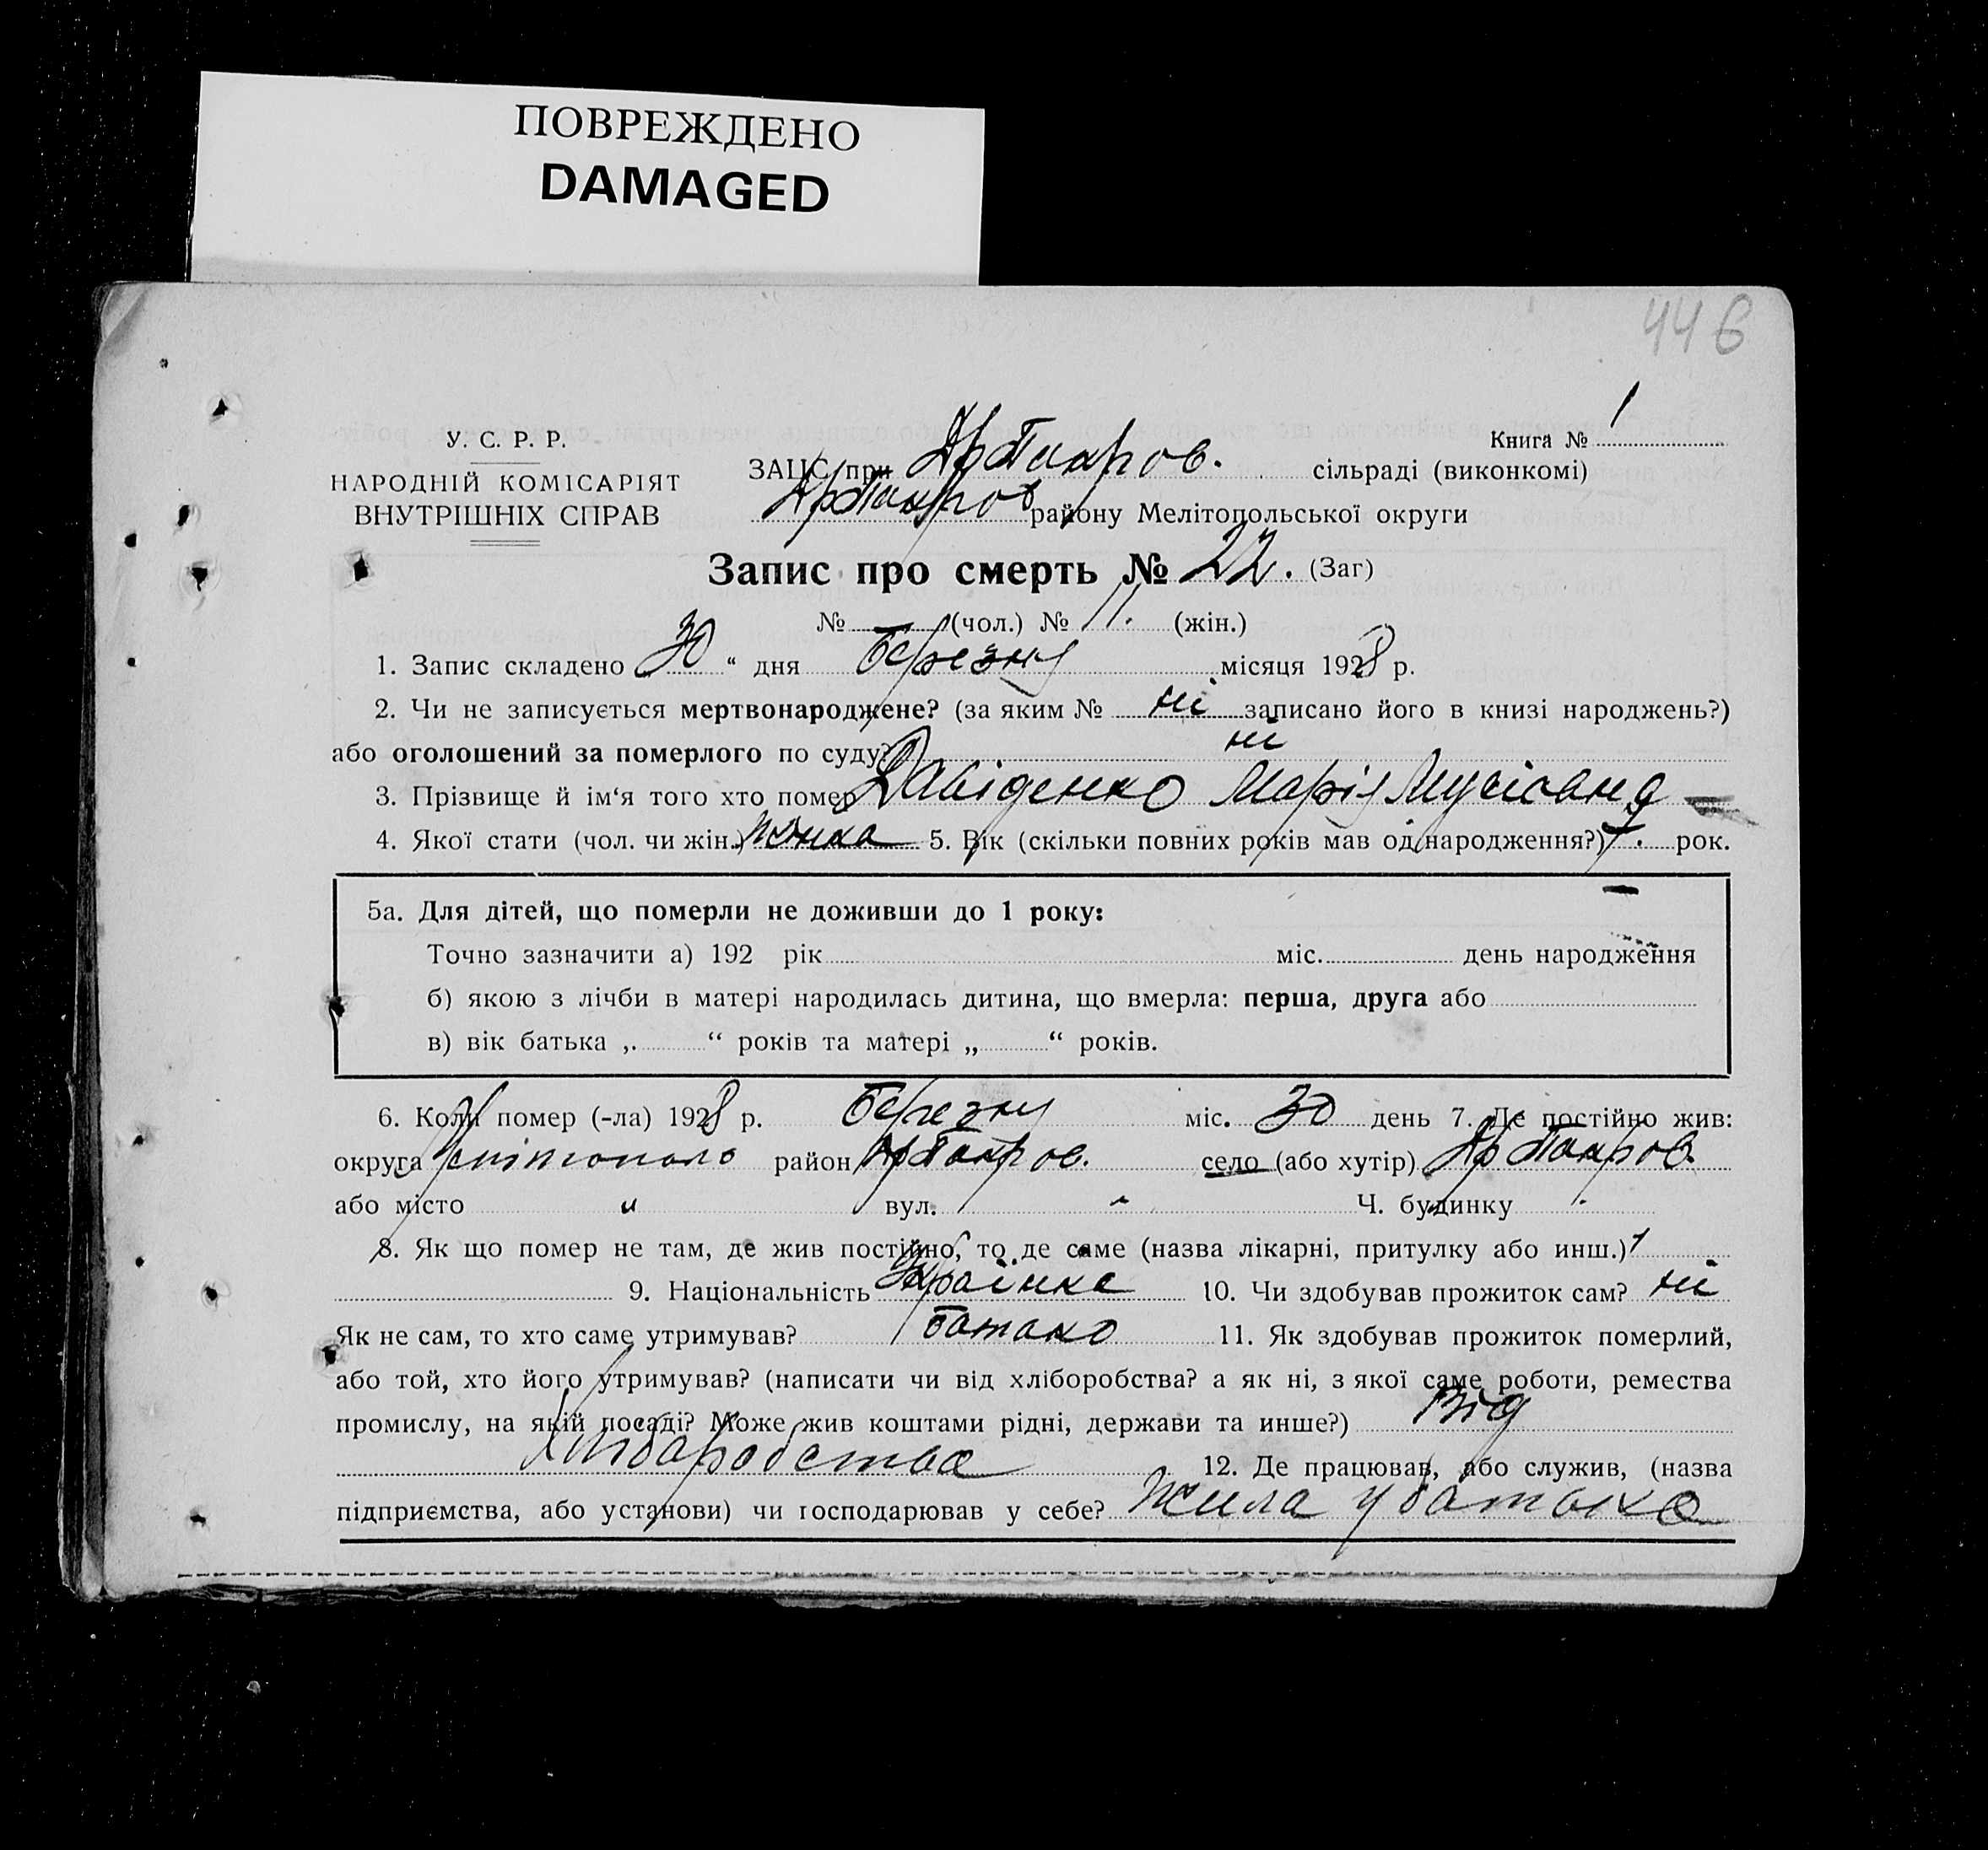 ПОВРЕЖДЕНО
DAMAGED
446
У. С. Р. Р.
НАРОДНІЙ КОМІСАРІЯТ
ВНУТРІШНІХ СПРАВ
Книга № 1
ЗАЦС при сільраді (виконкомі)
району Мелітопольської округи
Запис про смерть № 22. (Заг)
№ (чол.) № 11. (жін.)
1. Запис складено „30“ дня Березня місяця 1928 р.
2. Чи не записується мертвонароджене? (за яким № ні записано його в книзі народжень?)
або оголошений за померлого по суду? ні
3. Прізвище й ім‘я того хто помер Давіденко Марія
4. Якої стати (чол. чи жін.) жінка 5. Вік (скільки повних років мав од народження?) рок.
5а. Для дітей, що померли не доживши до 1 року:
Точно зазначити а) 192 рік міс. день народження
б) якою з лічби в матері народилась дитина, що вмерла: перша, друга або
в) вік батька „ “ років та матері „ “ років.
6. Коли помер (-ла) 1928 р. Березня міс. 30 день 7. Де постійно жив:
округа район село (або хутір)
або місто " вул. " Ч. будинку "
8. Як що помер не там, де жив постійно, то де саме (назва лікарні, притулку або инш.)
9. Національність Українка 10. Чи здобував прожиток сам? ні
Як не сам, то хто саме утримував? батько 11. Як здобував прожиток померлий,
або той, хто його утримував? (написати чи від хліборобства? а як ні, з якої саме роботи, ремества
промислу, на якій посаді? Може жив коштами рідні, держави та инше?) Від
хліборобства 12. Де працював, або служив, (назва
підприємства, або установи) чи господарював у себе? Жила у батька